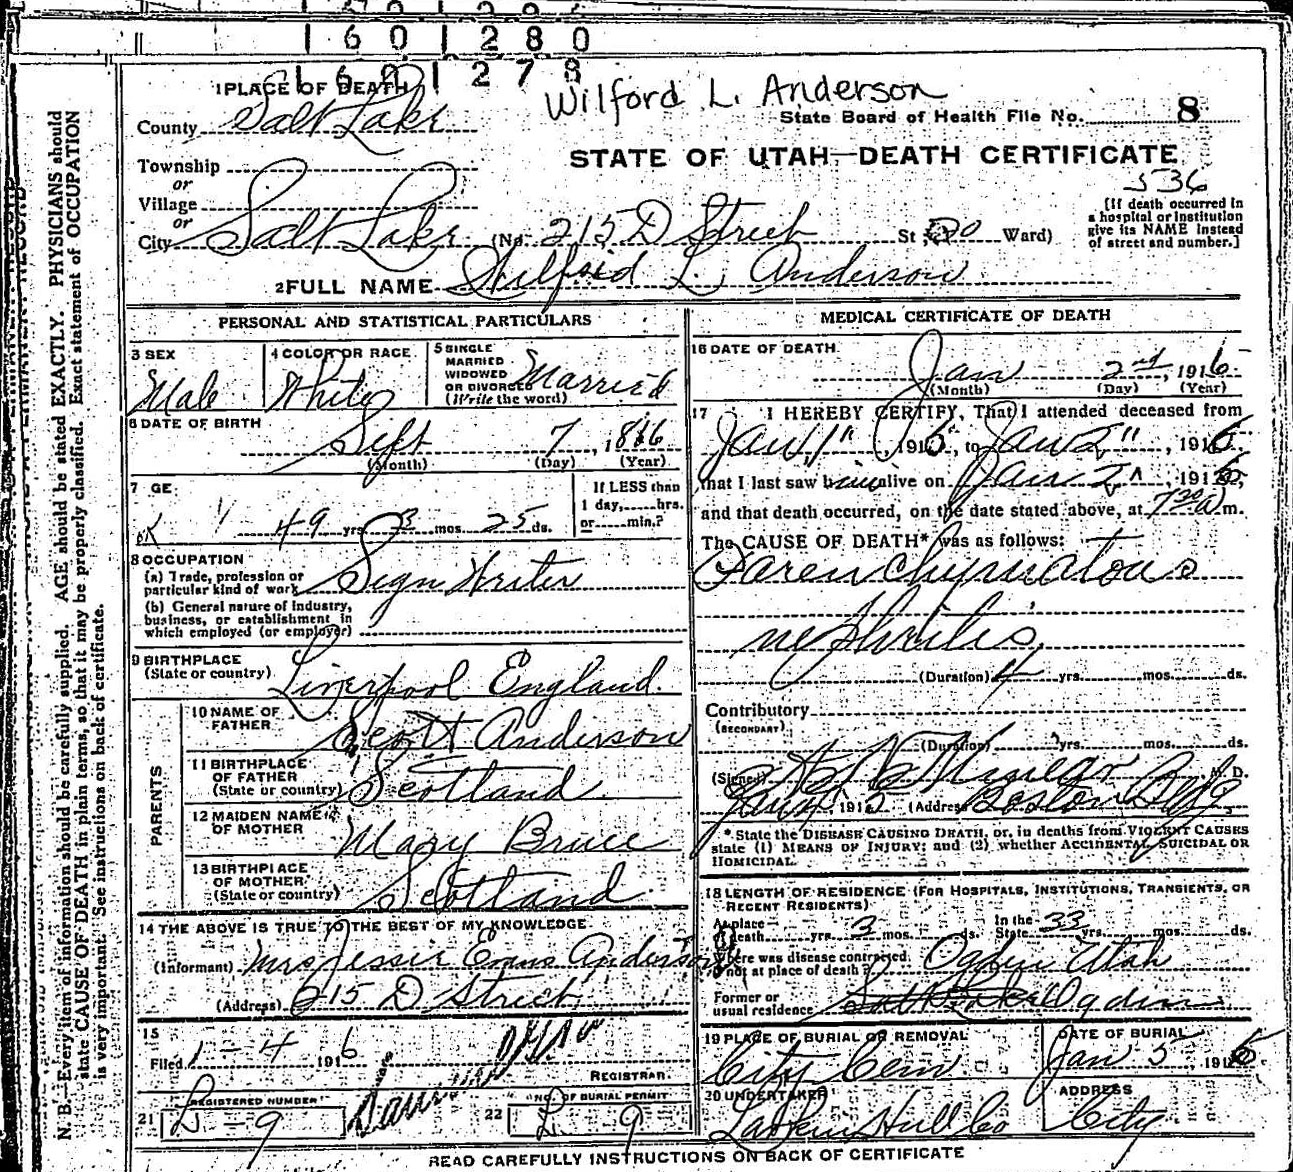 1 6 0 1 2 8 0
1 6 0 1 2 7 8
Wilford L. Anderson
1 PLACE OF DEATH
County Salt Lake
State Board of Health File No. 8
Township
or
Village
or
STATE OF UTAH—DEATH CERTIFICATE
536
City Salt Lake (No. 215 D Street St 20 Ward)
[If death occurred in
a hospital or institution
give its NAME instead
of street and number.]
2 FULL NAME Wilford L. Anderson
PERSONAL AND STATISTICAL PARTICULARS
3 SEX
Male
4 COLOR OR RACE
White
5 SINGLE
MARRIED
WIDOWED
OR DIVORCED
(Write the word)
Married
6 DATE OF BIRTH
Sept 7, 1866
(Month) (Day) (Year)
7 GE
49 yrs. 3 mos. 25 ds.
If LESS than
1 day, hrs.
or min.?
8 OCCUPATION
(a) Trade, profession or
particular kind of work
Sign Writer
(b) General nature of industry,
business, or establishment in
which employed (or employer)
9 BIRTHPLACE
(State or country)
Liverpool England.
PARENTS
10 NAME OF
FATHER
Scott Anderson
11 BIRTHPLACE
OF FATHER
(State or country)
Scotland
12 MAIDEN NAME
OF MOTHER
Mary Bruce
13 BIRTHPLACE
OF MOTHER
(State or country)
Scotland
14 THE ABOVE IS TRUE TO THE BEST OF MY KNOWLEDGE
(Informant) Mrs Jessie Evans Anderson
(Address) 215 D Street
15
Filed 1 - 4 1916
REGISTRAR
21 REGISTERED NUMBER
L 9
22 NO. OF BURIAL PERMIT
L 9
MEDICAL CERTIFICATE OF DEATH
16 DATE OF DEATH
Jan 2nd, 1916
(Month) (Day) (Year)
17 I HEREBY CERTIFY, That I attended deceased from
Jan 1", 1916, to Jan 2", 1916,
that I last saw him alive on Jan 2, 1916,
and that death occurred, on the date stated above, at 7 30 a m.
The CAUSE OF DEATH* was as follows:
Parenchymatous
nephritis
(Duration) 4 yrs. mos. ds.
Contributory
(SECONDARY)
(Duration) yrs. mos. ds.
(Signed) M. D.
191 (Address) Boston Bldg
*State the DISEASE CAUSING DEATH, or, in deaths from VIOLENT CAUSES
state (1) MEANS OF INJURY; and (2) whether ACCIDENTAL, SUICIDAL OR
HOMICIDAL.
18 LENGTH OF RESIDENCE (FOR HOSPITALS, INSTITUTIONS, TRANSIENTS, OR
RECENT RESIDENTS)
At place
death yrs. 3 mos. ds. In the State 33 yrs. mos. ds.
Where was disease contracted
if not at place of death? Ogden Utah
Former or
usual residence Salt Lake Ogden
19 PLACE OF BURIAL OR REMOVAL
City Cem
DATE OF BURIAL
Jan 5, 1916
20 UNDERTAKER
Larkin Hull Co
ADDRESS
City
READ CAREFULLY INSTRUCTIONS ON BACK OF CERTIFICATE
N. B.—Every item of information should be carefully supplied. AGE should be stated EXACTLY. PHYSICIANS should
state CAUSE OF DEATH in plain terms, so that it may be properly classified. Exact statement of OCCUPATION
is very important. See instructions on back of certificate.